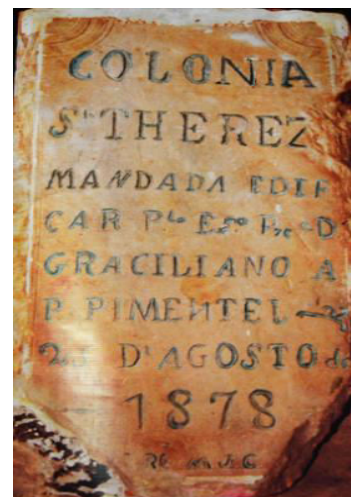 COLONIA
Sta THEREZ
MANDADA EDIF
CAR Plo Exmo D
GRACILIANO A
P. PIMENTEL
D'AGOSTO de
1878